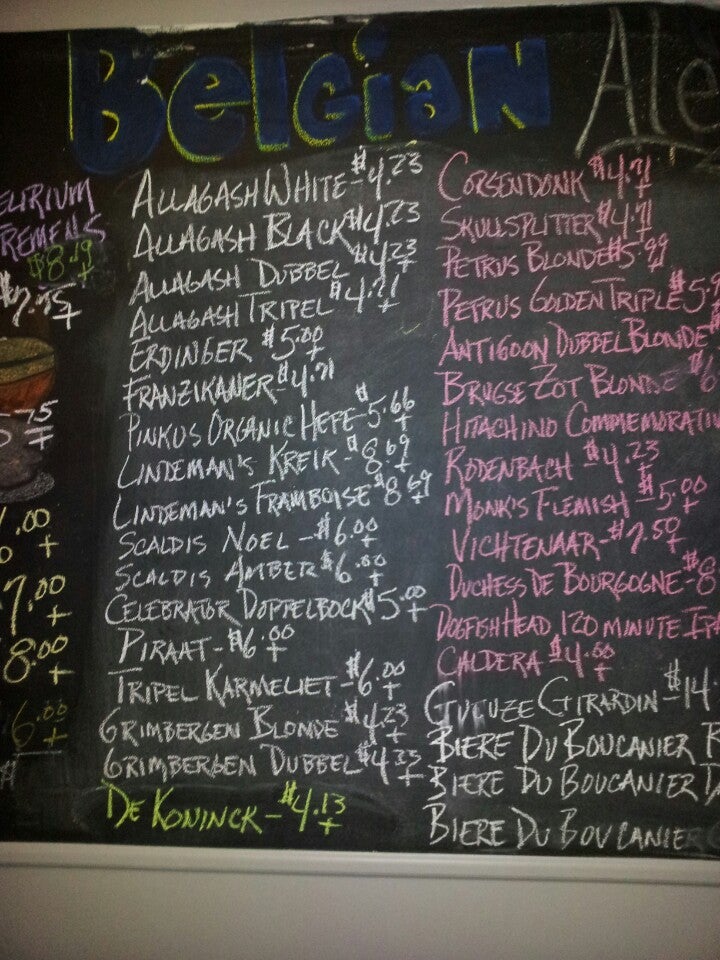 Belgian Ale
ELIRIUM
REMENS
$8.49
+
$7.95
+
5.75
+
.00
+
7.00
+
8.00
+
6.00
+
ALLAGASH WHITE - $4.23
ALLAGASH BLACK $4.23
+
ALLAGASH DUBBEL $4.23
+
ALLAGASH TRIPEL $4.71
+
ERDINGER $5.00
+
FRANZIKANER - $4.71
PINKUS ORGANIC HEFE - $5.66
+
LINDEMAN'S KREIK - $8.69
+
LINDEMAN'S FRAMBOISE $8.69
+
SCALDIS NOEL - $6.00
+
SCALDIS AMBER $6.00
+
CELEBRATOR DOPPELBOCK $5.00
+
PIRAAT - $6.00
+
TRIPEL KARMELIET - $6.00
+
GRIMBERGEN BLONDE $4.23
+
GRIMBERGEN DUBBEL - $4.23
+
DE KONINCK - $4.13
+
CORSENDONK $4.71
+
SKULLSPLITTER $4.71
+
PETRUS BLONDE $5.99
+
PETRUS GOLDEN TRIPLE $5.9
ANTIGOON DUBBEL BLONDE $
BRUGSE ZOT BLONDE $6
HITACHINO COMMEMORATIV
RODENBACH - $4.23
+
MONK'S FLEMISH - $5.00
+
VICHTENAAR - $7.50
+
DUCHESS DE BOURGOGNE - $8
DOGFISH HEAD 120 MINUTE IPA
CALDERA - $4.00
+
GUEUZE GIRARDIN - $14.
BIERE DU BOUCANIER R
BIERE DU BOUCANIER DA
BIERE DU BOUCANIER